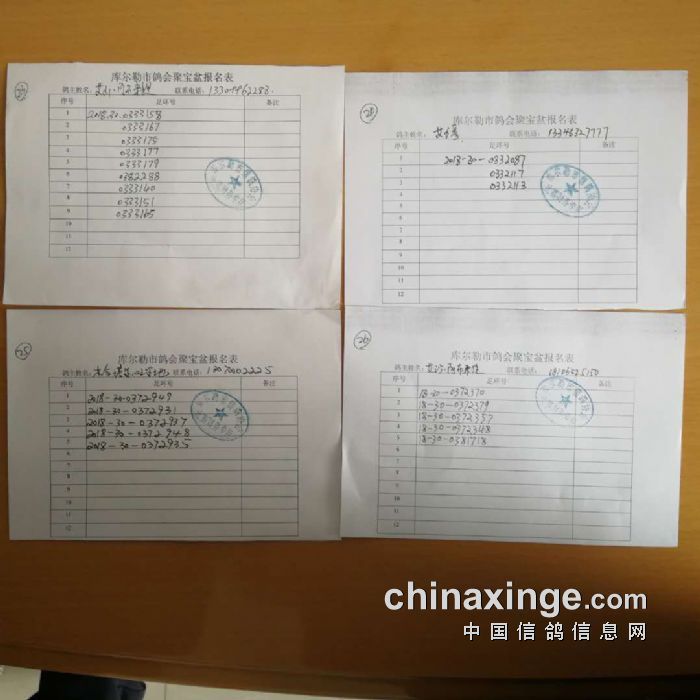 库尔勒市鸽会聚宝盆报名表
鸽主姓名: 联系电话:
序号 足环号 备注
1 2018-30-0333158
2 0333167
3 0333175
4 0333177
5 0333179
6 0382288
7 0333140
8 0333151
9 0333165
10
11
12
库尔勒市鸽会聚宝盆报名表
鸽主姓名: 联系电话: 13346327777
序号 足环号 备注
1 2018-30-0332087
2 0332117
3 0332113
4
5
6
7
8
9
10
11
12
25
库尔勒市鸽会聚宝盆报名表
鸽主姓名: 联系电话:
序号 足环号 备注
1 2018-30-0372949
2 2018-30-0372931
3 2018-30-0372937
4 2018-30-0372948
5 2018-30-0372935
6
7
8
9
10
11
12
26
库尔勒市鸽会聚宝盆报名表
鸽主姓名: 联系电话:
序号 足环号 备注
1 18-30-0372370
2 18-30-0372379
3 18-30-0372357
4 18-30-0372348
5 18-30-0381718
6
7
8
9
10
11
12
chinaxinge.com
中国信鸽信息网